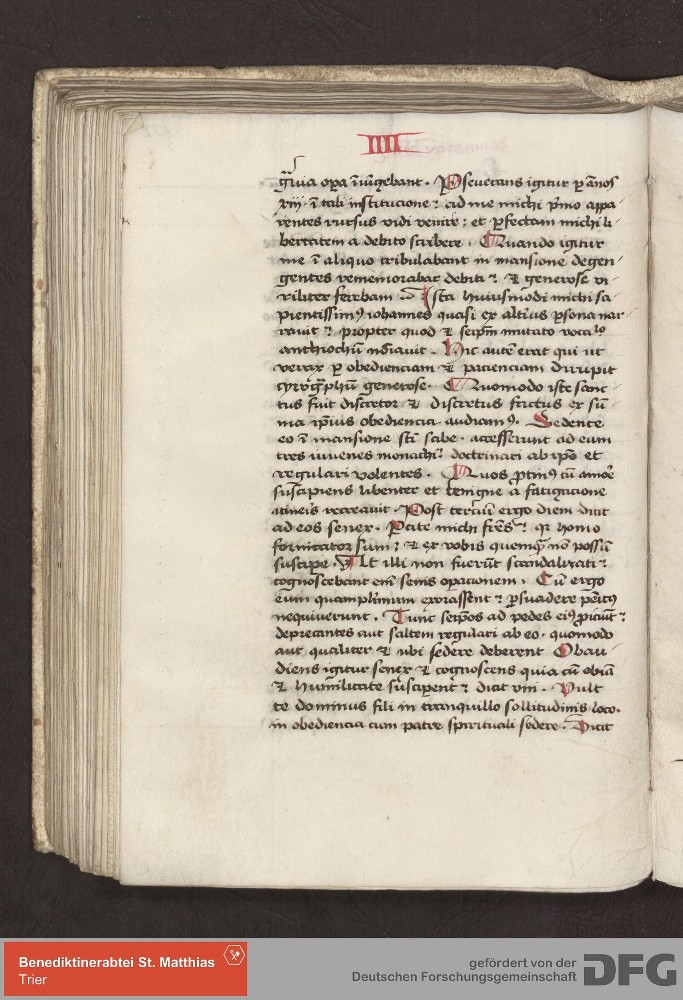 IIII
gᷓuia opa iniūgebant. Pseuerans igitur p ānos
xiij. ī tali institucione : ad me michi pͥmo appa
rentes rursus vidi venire ; et pfectam michi li
bertatem a debito scribere. Quando igitur
me ī aliquo tribulabant in mansione degen
gentes rememorabar debiti : et generose vi
riliter ferebam Ista huiusmodi michi sa
pientissimꝰ iohannes quasi ex altiꝰ psona nar
rauit : propter quod et seipm mutato vocalo
anthiochū nōiauit. Hic autē erat qui ut
verax p obedienciam et pacienciam dirrupit
cyrogͣphū generose. Quomodo iste sanc
tus fuit discretor et discretus fructus ex sūm
ma ipius obediencia audiamꝰ. Sedente
eo ī mansione scī sabe. accesserunt ad eum
tres iuuenes monachi doctrinari ab ipo et
regulari volentes. Quos ptinꝰ cū amore
suscipiens libenter et benigne a fatigacione
itineris recreauit. Post terciū ergo diem dixit
ad eos senex. Pcite michi fres : qr homo
fornicator sum ; et ex vobis quemqͣ nō possū
suscipe. At illi non fuerūt scandalizati :
cognoscebant em̄ senis opacionem. Cū ergo
eum quamplimum exorassent et psuadere penitꝰ
nequiuerunt. Tunc seipos ad pedes eiꝰ piciūt :
deprecantes aut saltem regulari ab eo. quomodo
aut qualiter et ubi sedere deberent Obau
diens igitur senex et cognoscens quia cū obiā
et humilitate suscipent : dicit vni. Vult
te dominus fili in tranquillo sollitudinis loco.
in obediencia cum patre spirituali sedere. Dicit
Benediktinerabtei St. Matthias
Trier
gefördert von der
Deutschen Forschungsgemeinschaft
DFG